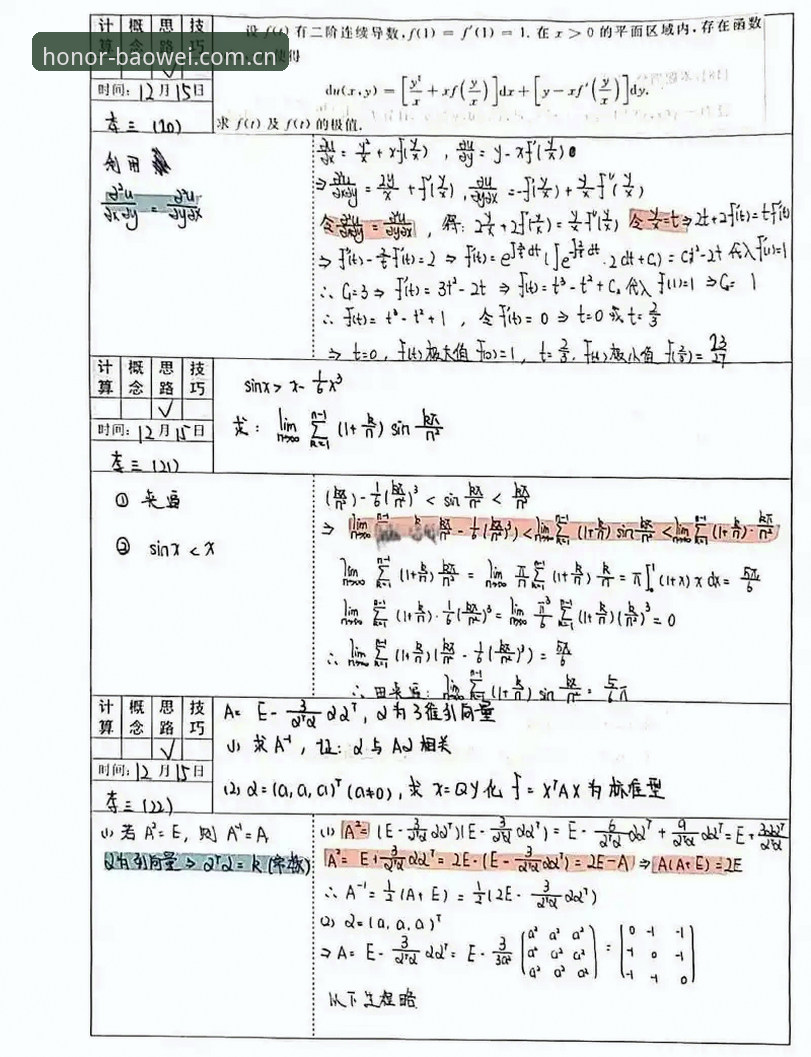 计算 概念 思路 技巧
设 f(t) 有二阶连续导数, f(1) = f′(1) = 1. 在 x > 0 的平面区域内, 存在函数
honor-baowei.com.cn
使得
√
du(x,y) = [y²/x + xf(y/x)]dx + [y − xf′(y/x)]dy.
时间: 12月15日
李三 (20)
求 f(t) 及 f(t) 的极值.
利用
∂²u/∂x∂y = ∂²u/∂y∂x
∂u/∂x = y²/x + xf(y/x) , ∂u/∂y = y − xf′(y/x)
⇒ ∂u/∂x∂y = 2y/x + f′(y/x) , ∂u/∂y∂x = −f′(y/x) + y/x f″(y/x)
令 ∂²u/∂x∂y = ∂²u/∂y∂x , 得: 2y/x + 2f′(y/x) = y/x f″(y/x) 令 y/x = t ⇒ 2t + 2f′(t) = t f″(t)
⇒ f″(t) − 2/t f′(t) = 2 ⇒ f′(t) = e^∫2/t dt (∫e^∫-2/t dt · 2dt + C₁) = Ct² − 2t 代入 f′(1) = 1
∴ C₁ = 3 ⇒ f′(t) = 3t² − 2t ⇒ f(t) = t³ − t² + C₂ 代入 f(1) = 1 ⇒ C₂ = 1
∴ f(t) = t³ − t² + 1 , 令 f′(t) = 0 ⇒ t = 0 或 t = 2/3
⇒ t = 0, f(t) 极大值 f(0) = 1 , t = 2/3, f(t) 极小值 f(2/3) = 23/27
计算 概念 思路 技巧
√
时间: 12月15日
李三 (21)
sinx > x − 1/6 x³
求: lim n→∞ Σ k=1 n−1 (1 + k/n) sin kπ/n²
① 夹逼
② sinx < x
(kπ/n²) − 1/6 (kπ/n²)³ < sin kπ/n² < kπ/n²
⇒ lim n→∞ Σ n−1 kπ/n² − 1/6 (kπ/n²)³) < lim n→∞ Σ k=1 n−1 (1 + k/n) sin kπ/n² < lim n→∞ Σ k=1 n−1 (1 + k/n) · kπ/n²
lim n→∞ Σ k=1 n−1 (1 + k/n) kπ/n² = lim n→∞ π/n Σ k=1 n−1 (1 + k/n) k/n = π∫₀¹ (1 + x) x dx = 5π/6
lim n→∞ Σ k=1 n−1 (1 + k/n) · 1/6 (kπ/n²)³ = lim n→∞ π³/6 Σ k=1 n−1 (1 + k/n)(k/n²)³ = 0
∴ lim n→∞ Σ k=1 n−1 (1 + k/n)(kπ/n² − 1/6 (kπ/n²)³) = 5π/6
∴ 由夹逼: lim n→∞ Σ k=1 n−1 (1 + k/n) sin kπ/n² = 5/6 π
计算 概念 思路 技巧
√
时间: 12月15日
李三 (22)
A = E − 3/αᵀα ααᵀ , α 为3维列向量
(1) 求 A⁻¹ , 证: α 与 Aα 相关
(2) α = (a, a, a)ᵀ (a≠0) , 求 x = Qy 化 f = xᵀAx 为标准型
(1) 若 A² = E , 则 A⁻¹ = A
α为列向量 ⇒ αᵀα = k (常数)
(1) A² = (E − 3/αᵀα ααᵀ)(E − 3/αᵀα ααᵀ) = E − 6/αᵀα ααᵀ + 9/αᵀα ααᵀ = E + 3ααᵀ/αᵀα
A² = E + 3/αᵀα ααᵀ = 2E − (E − 3/αᵀα ααᵀ) = 2E − A) ⇒ A(A + E) = 2E
∴ A⁻¹ = 1/2 (A + E) = 1/2 (2E − 3/αᵀα ααᵀ)
(2) α = (a, a, a)ᵀ
⇒ A = E − 3/αᵀα ααᵀ = E − 3/3a² (a² a² a² a² a² a² a² a² a²) = [0 −1 −1 −1 0 −1 −1 −1 0]
以下过程略